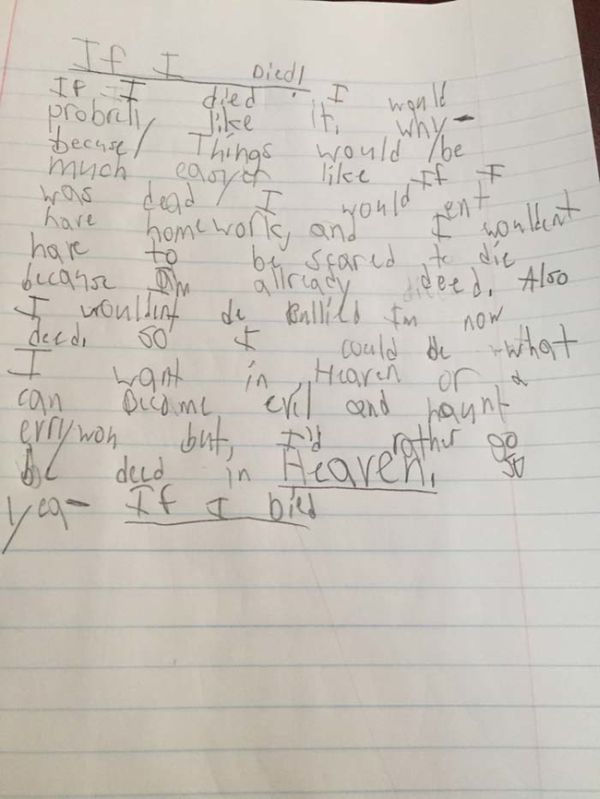 If I Died!
If I died I would
probreli like it, why-
becuse/ Things would be
much easyer like If I
was dead/ I would ent
have homework, and I wouldent
have to be scared to die
because Im allready deed. Also
I wouldint be Bullied Im now
deed. So I could be what
I want in Heaven or a
can become evil and haunt
errywon but, I'd rather go
be deed in Heaven. so
yea- If I Died